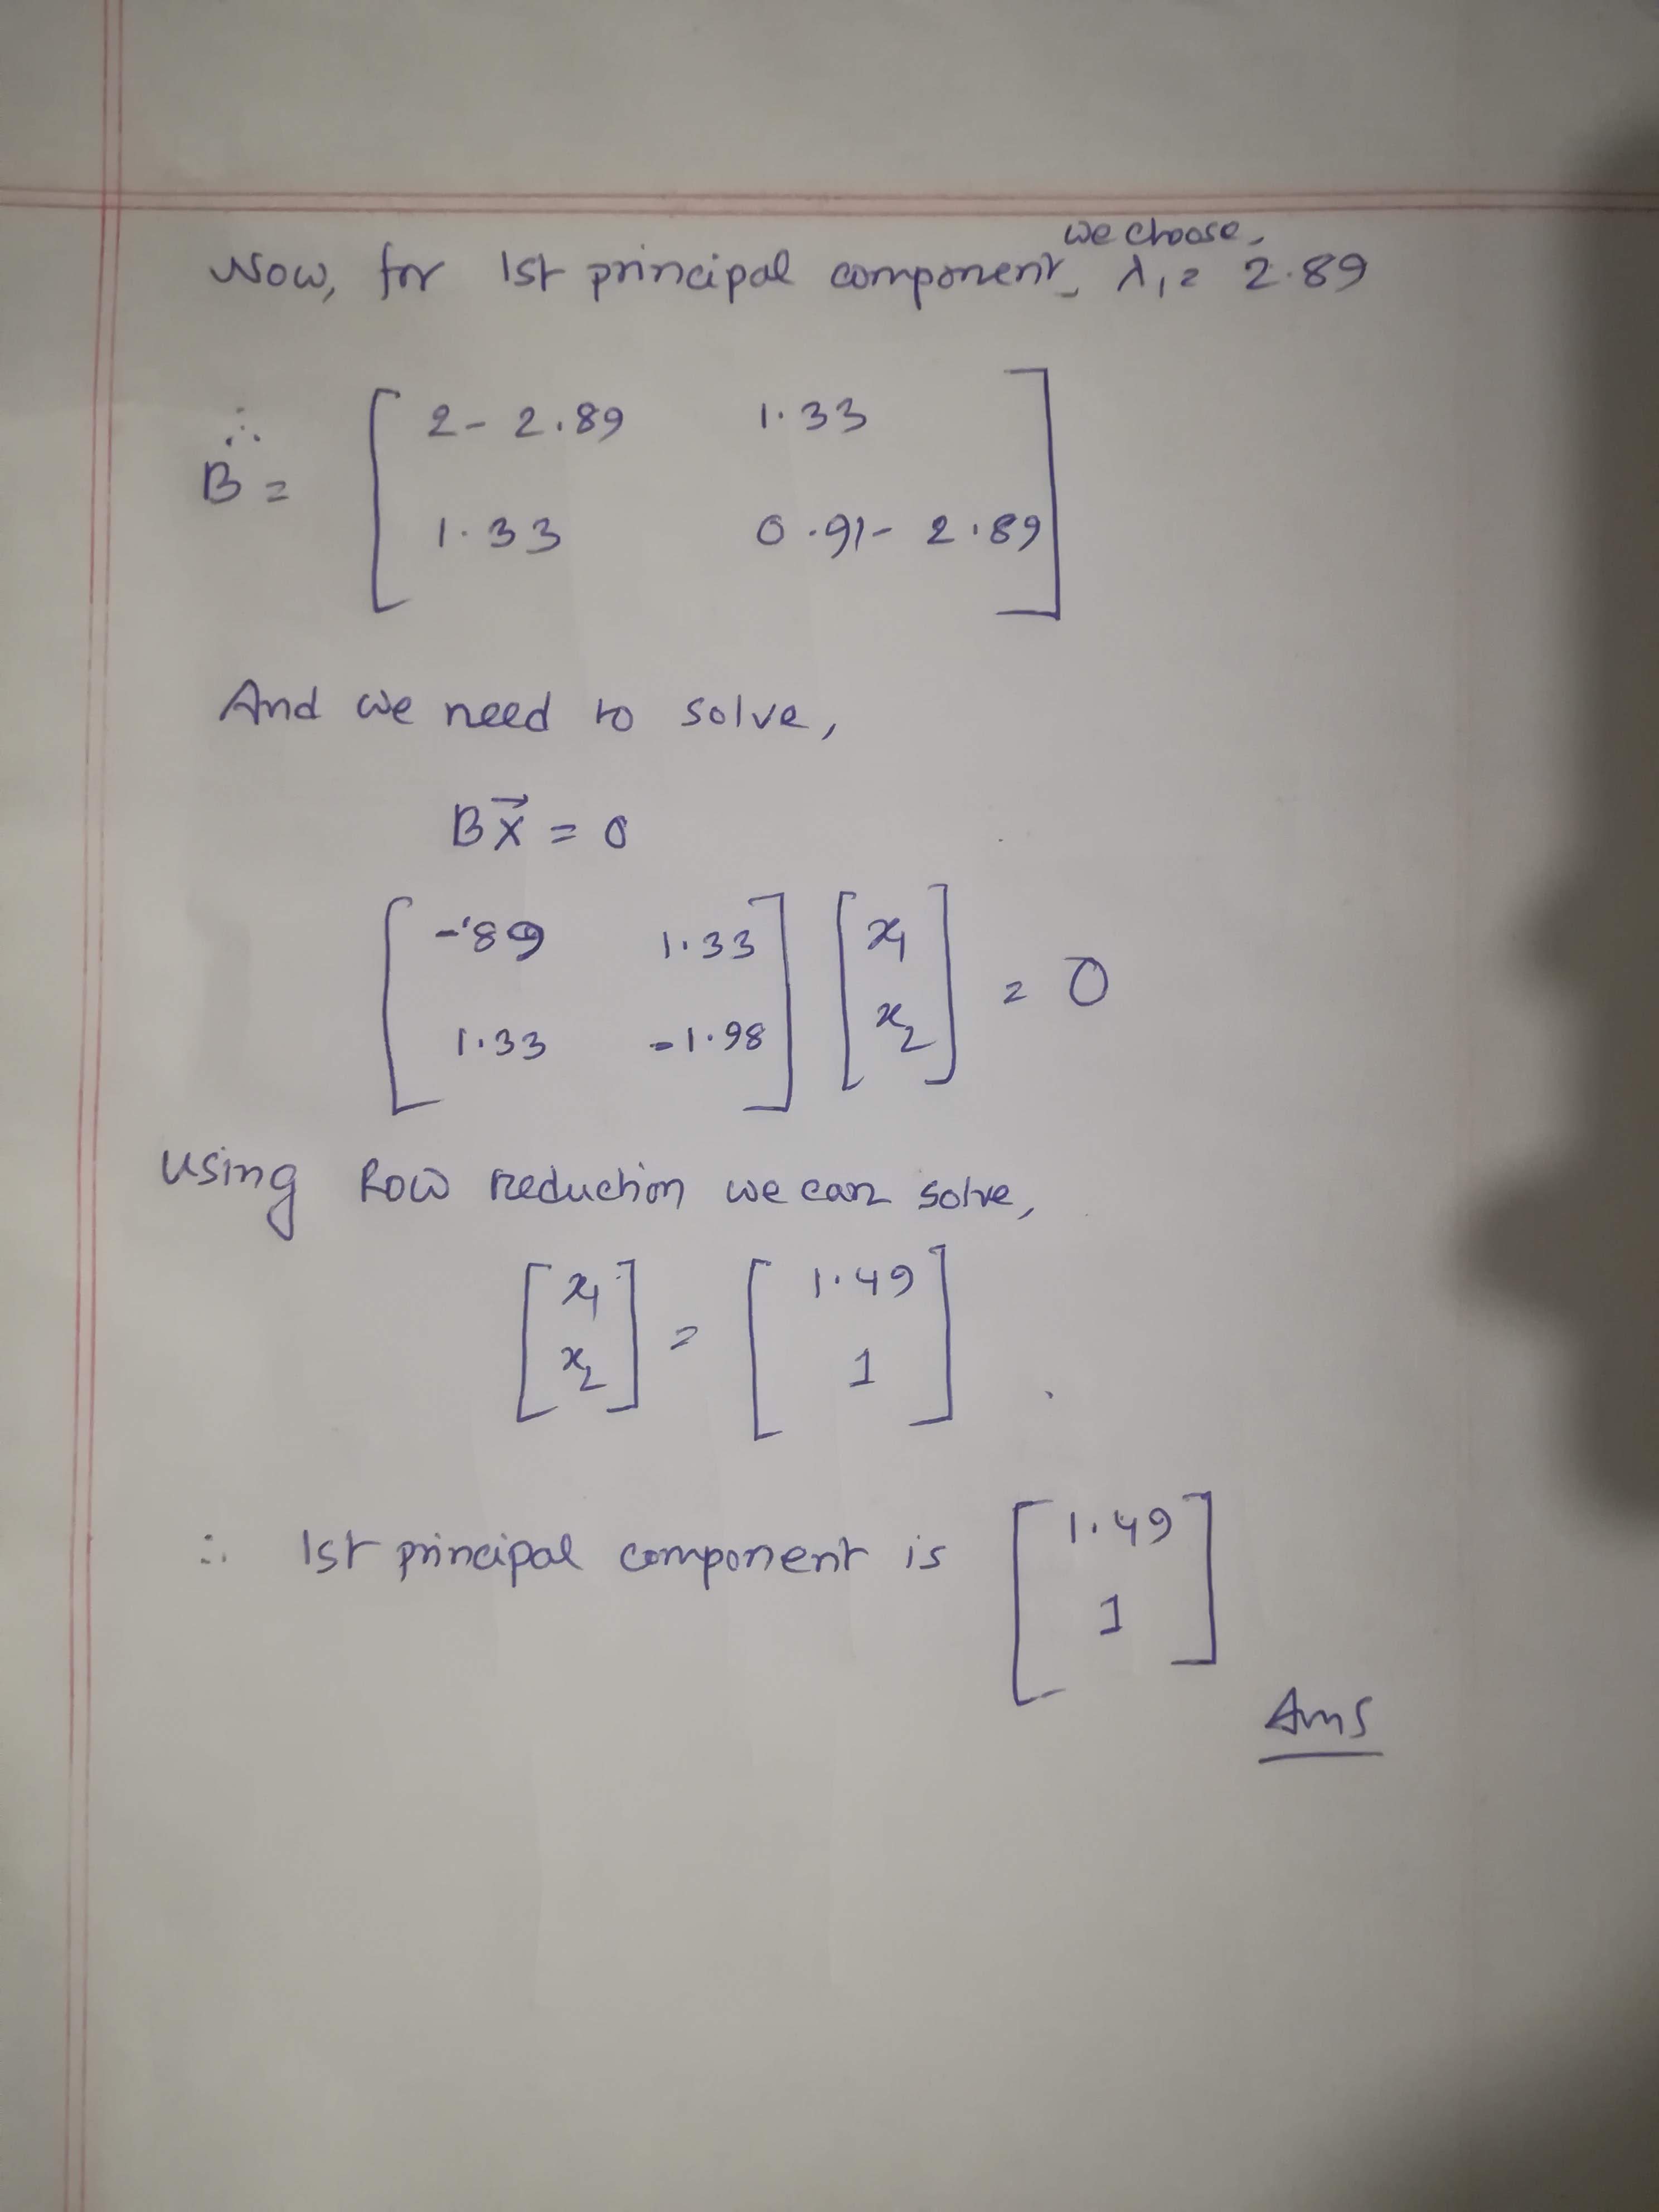 we choose,
Now, for 1st principal component, λ₁ = 2.89
∴
B = [ 2 - 2.89 1.33
1.33 0.91 - 2.89 ]
And we need to solve,
Bx⃗ = 0
[ -.89 1.33
1.33 -1.98 ] [ x₁
x₂ ] = 0
Using Row reduction we can solve,
[ x₁
x₂ ] = [ 1.49
1 ]
∴ 1st principal component is [ 1.49
1 ]
Ans